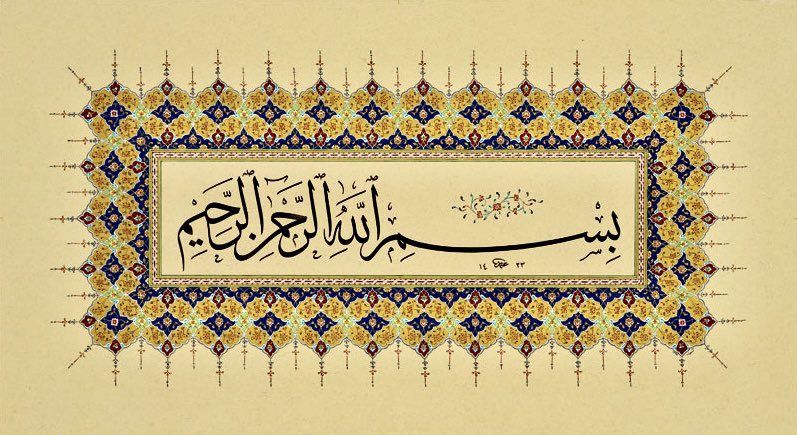 بِسْمِ اللّٰهِ الرَّحْمٰنِ الرَّحِيمِ
١٤ ٢٣